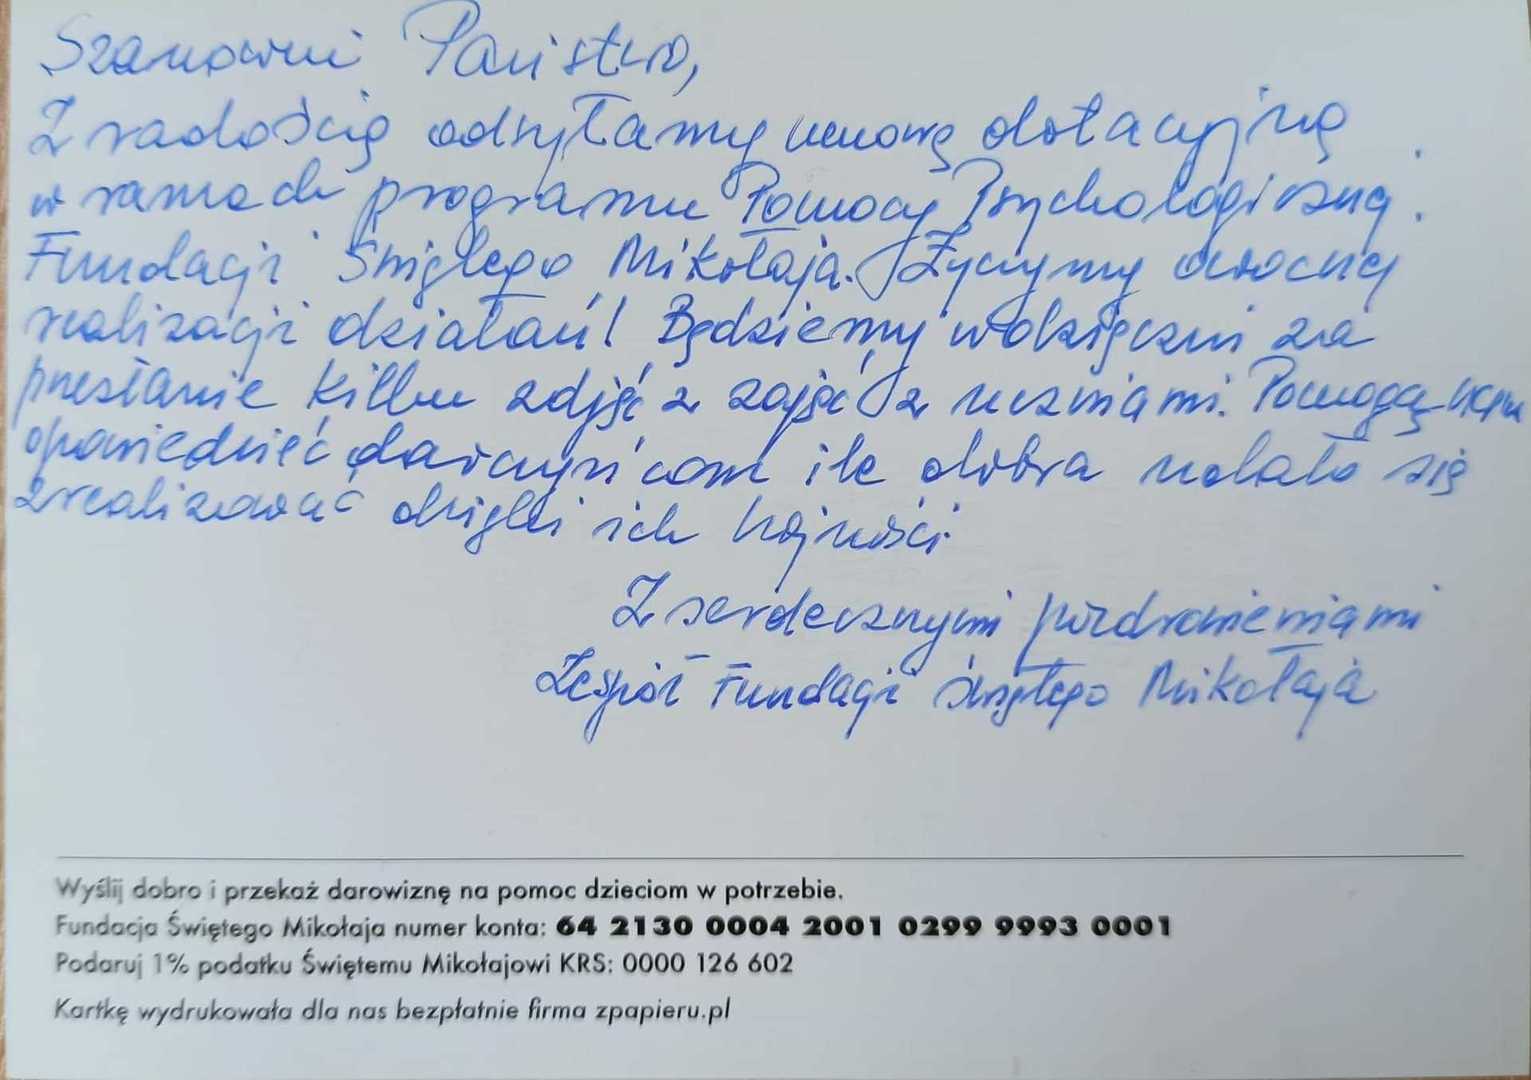 Szanowni Państwo,
Z radością odsyłamy umowę dotacyjną
w ramach programu Pomocy Psychologicznej
Fundacji Świętego Mikołaja. Życzymy owocnej
realizacji działań! Będziemy wdzięczni za
przesłanie kilku zdjęć z zajęć z uczniami. Pomogą nam
opowiedzieć darczyńcom ile dobra udało się
zrealizować dzięki ich hojności.
Z serdecznymi pozdrowieniami
Zespół Fundacji Świętego Mikołaja
Wyślij dobro i przekaż darowiznę na pomoc dzieciom w potrzebie.
Fundacja Świętego Mikołaja numer konta: 64 2130 0004 2001 0299 9993 0001
Podaruj 1% podatku Świętemu Mikołajowi KRS: 0000 126 602
Kartkę wydrukowała dla nas bezpłatnie firma zpapieru.pl